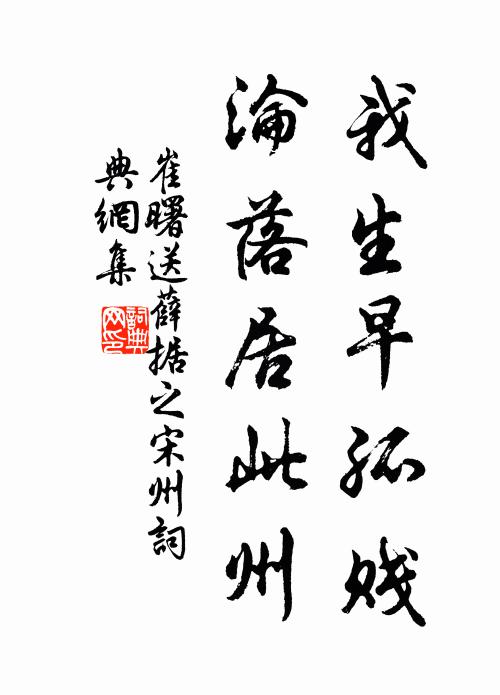 我生早孤贱
淪落居此州
崔曙送薛据之宋州詞
典網集
詞典
网印